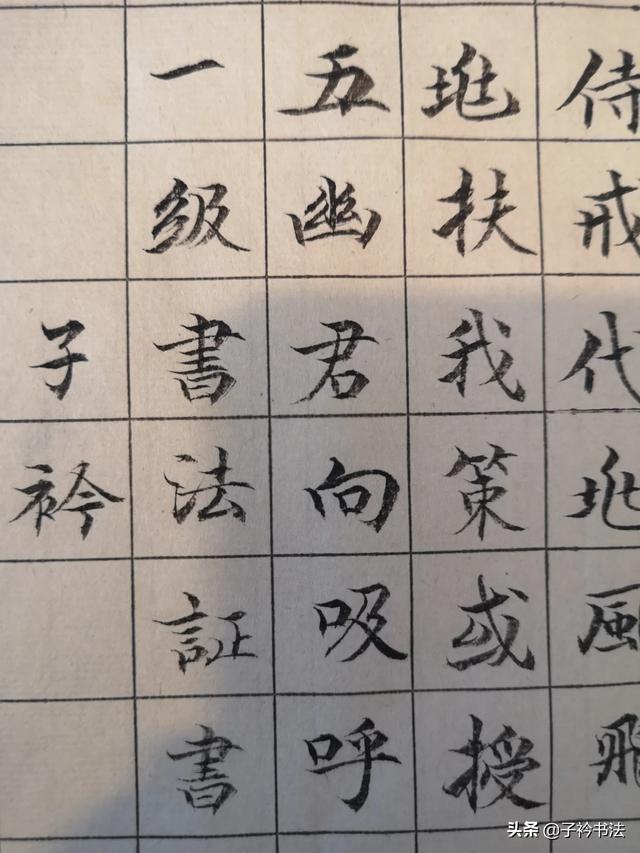 侍戒代地風飛
地扶我策或授
五幽君向吸呼
一级書法証書
子衿
头条 @子衿书法